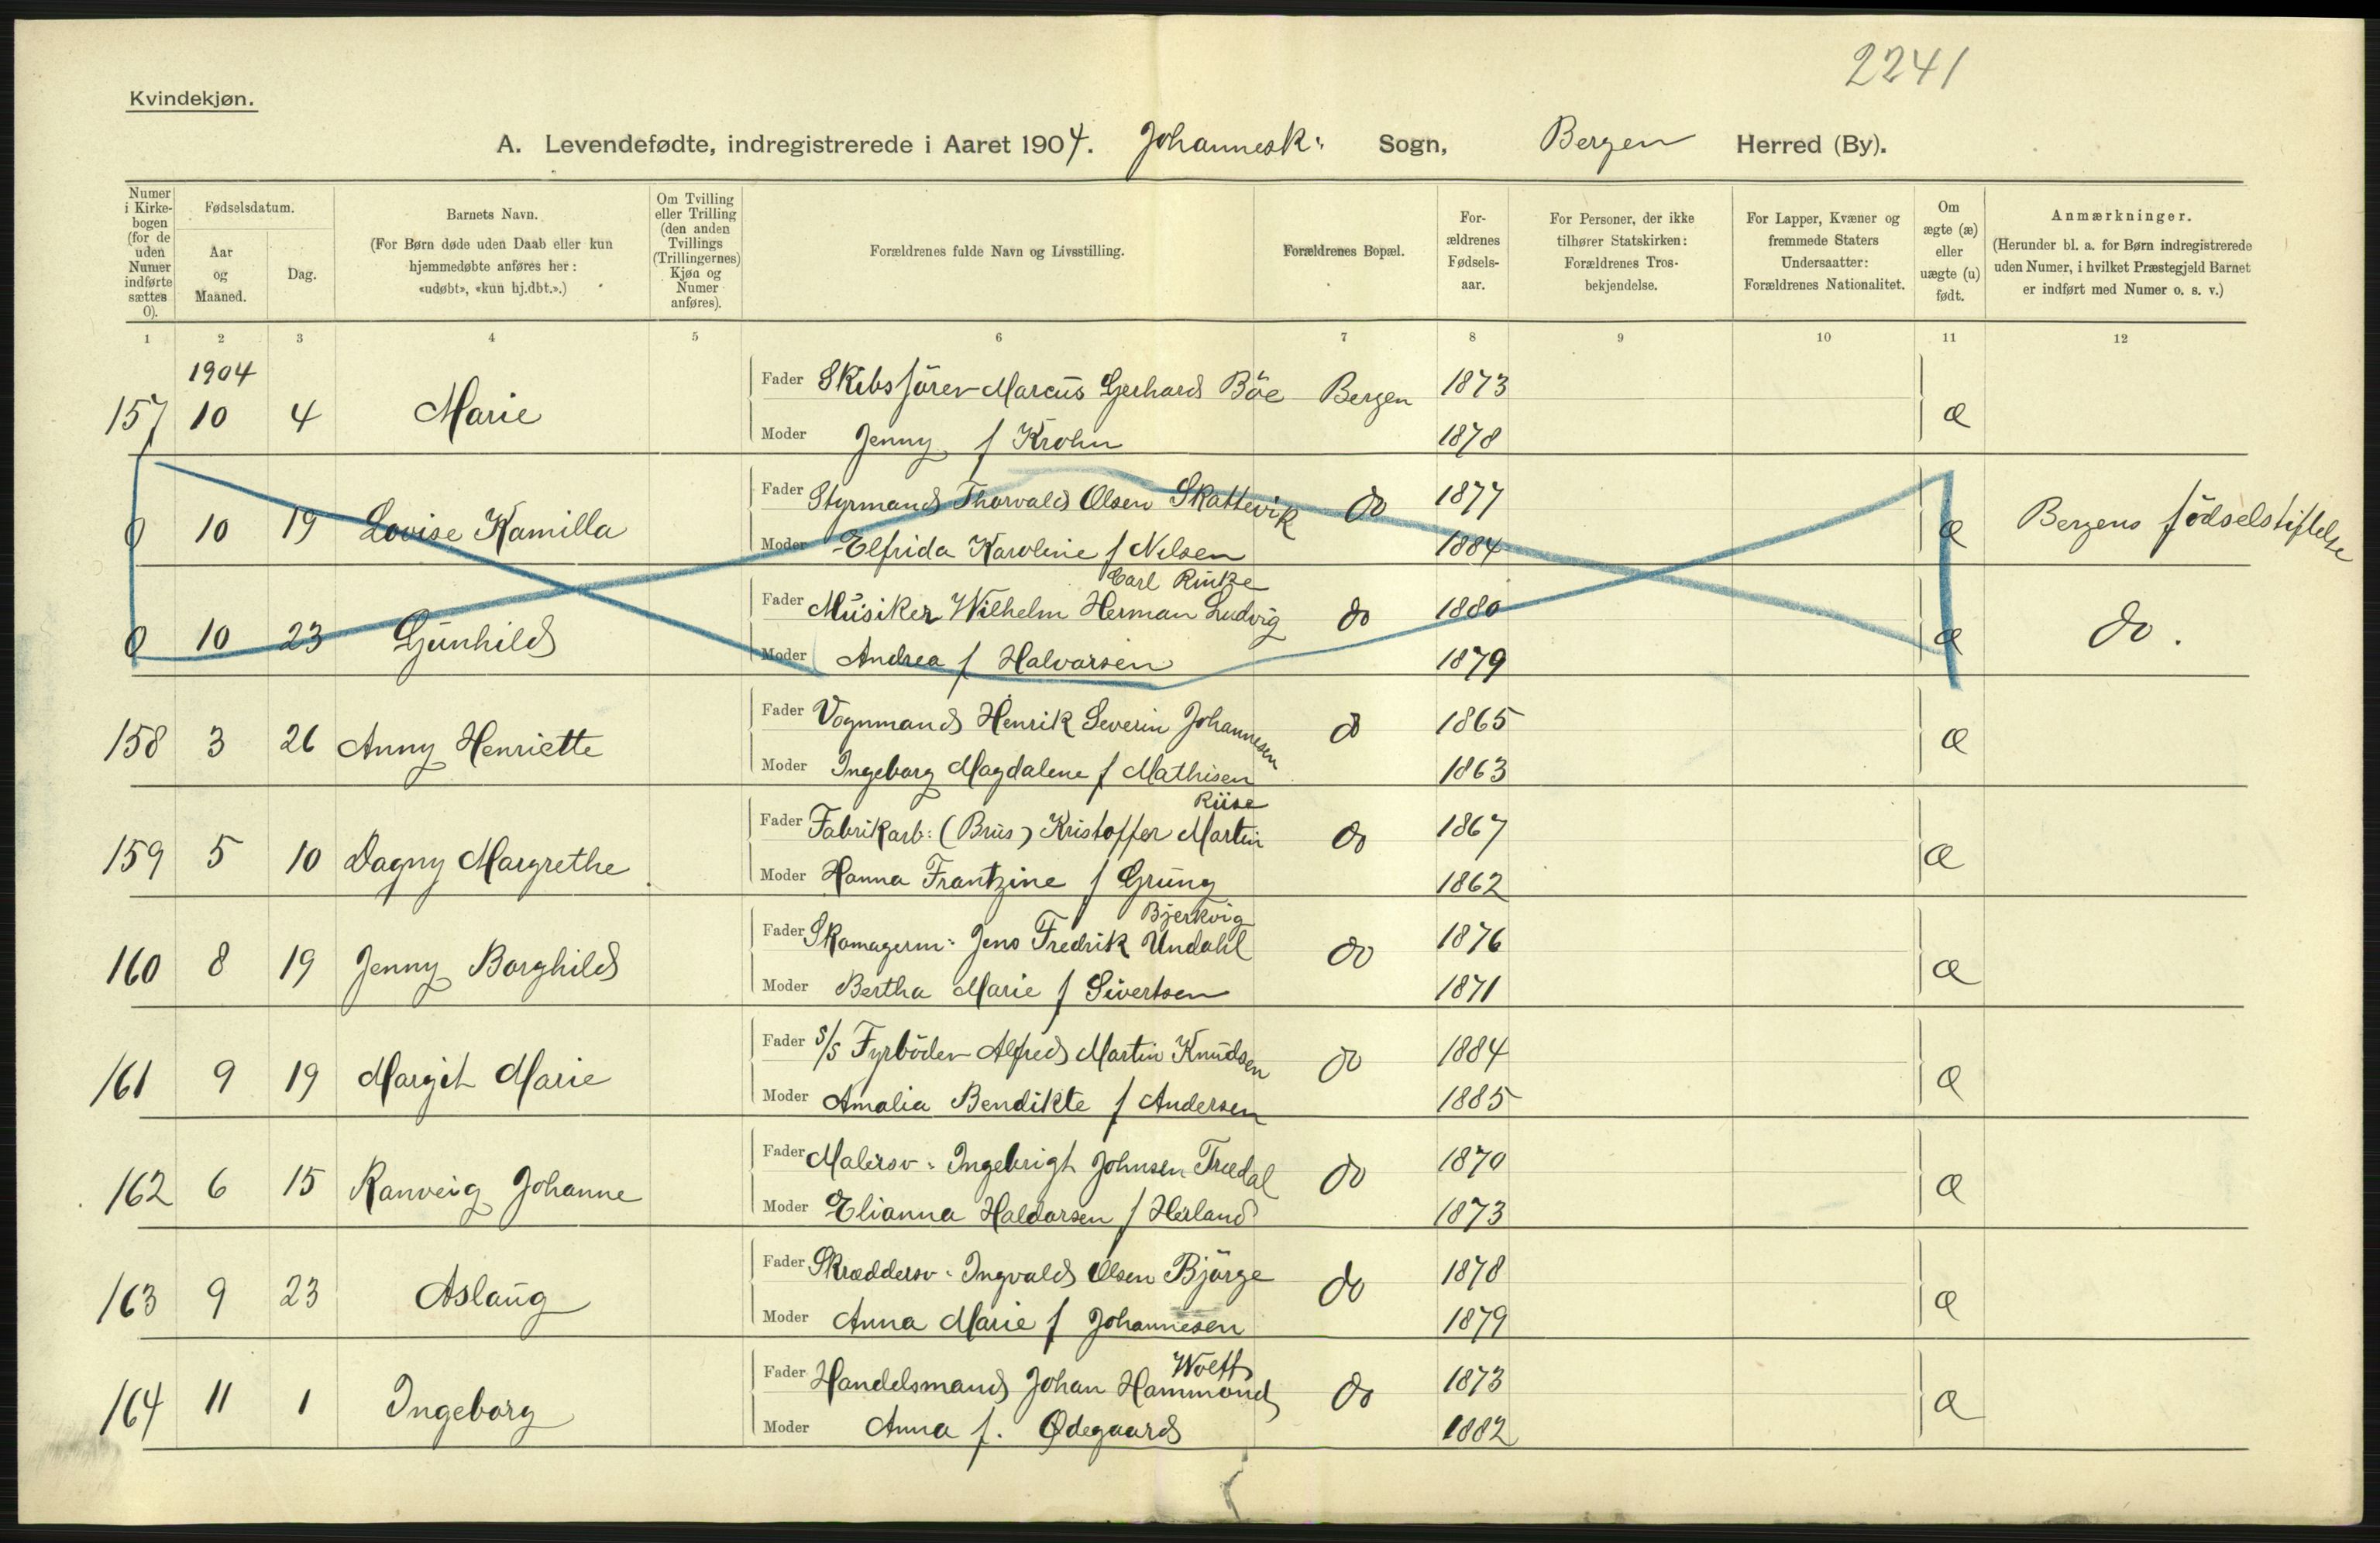 2241
Kvindekjøn.
A. Levendefødte, indregistrerede i Aaret 1904. Johannesk: Sogn, Bergen Herred (By).
Numer i Kirkebogen (for de uden Numer indførte sættes 0).
Fødselsdatum.
Aar og Maaned.
Dag.
Barnets Navn.
(For Børn døde uden Daab eller kun hjemmedøbte anføres her: «udøbt», «kun hj.dbt.».)
Om Tvilling eller Trilling (den anden Tvillings (Trillingernes) Kjøn og Numer anføres).
Forældrenes fulde Navn og Livsstilling.
Forældrenes Bopæl.
Forældrenes Fødselsaar.
For Personer, der ikke tilhører Statskirken: Forældrenes Trosbekjendelse.
For Lapper, Kvæner og fremmede Staters Undersaatter: Forældrenes Nationalitet.
Om ægte (æ) eller uægte (u) født.
Anmærkninger.
(Herunder bl. a. for Børn indregistrerede uden Numer, i hvilket Præstegjeld Barnet er indført med Numer o. s. v.)
1 2 3 4 5 6 7 8 9 10 11 12
1904
157 10 4 Marie Fader Skibsförer Marcus Gerhard Böe Bergen 1873 æ
Moder Jenny f Krohn 1878
0 10 19 Lovise Kamilla Fader Styrmand Thorvald Olsen Skattevik do 1877 æ Bergens födselstiftelse
Moder Elfrida Karoline f Nilsen 1884
Carl Rinke
0 10 23 Gunhild Fader Musiker Wilhelm Herman Ludvig do 1880 æ do.
Moder Andrea f Halvorsen 1879
158 3 26 Anny Henriette Fader Vognmand Henrik Severin Johannesen do 1865 æ
Moder Ingeborg Magdalene f Mathisen 1863
Riise
159 5 10 Dagny Margrethe Fader Fabrikarb: (Brus) Kristoffer Martin do 1867 æ
Moder Hanna Frantzine f Grung 1862
Bjerkvig
160 8 19 Jenny Borghild Fader Skomagerm: Jens Fredrik Undahl do 1876 æ
Moder Bertha Marie f Sivertsen 1871
161 9 19 Margit Marie Fader S/S Fyrböder Alfred Martin Knudsen do 1884 æ
Moder Amalia Bendikte f Andersen 1885
162 6 15 Ranveig Johanne Fader Malersv: Ingebrigt Johnsen Trædal do 1870 æ
Moder Elianna Haldorsen f Herland 1873
163 9 23 Aslaug Fader Skræddersv: Ingvald Olsen Bjørge do 1878 æ
Moder Anna Marie f Johannesen 1879
164 11 1 Ingeborg Fader Handelsmand Johan Hammond do 1873 æ
Moder Anna f. Ødegaard 1882